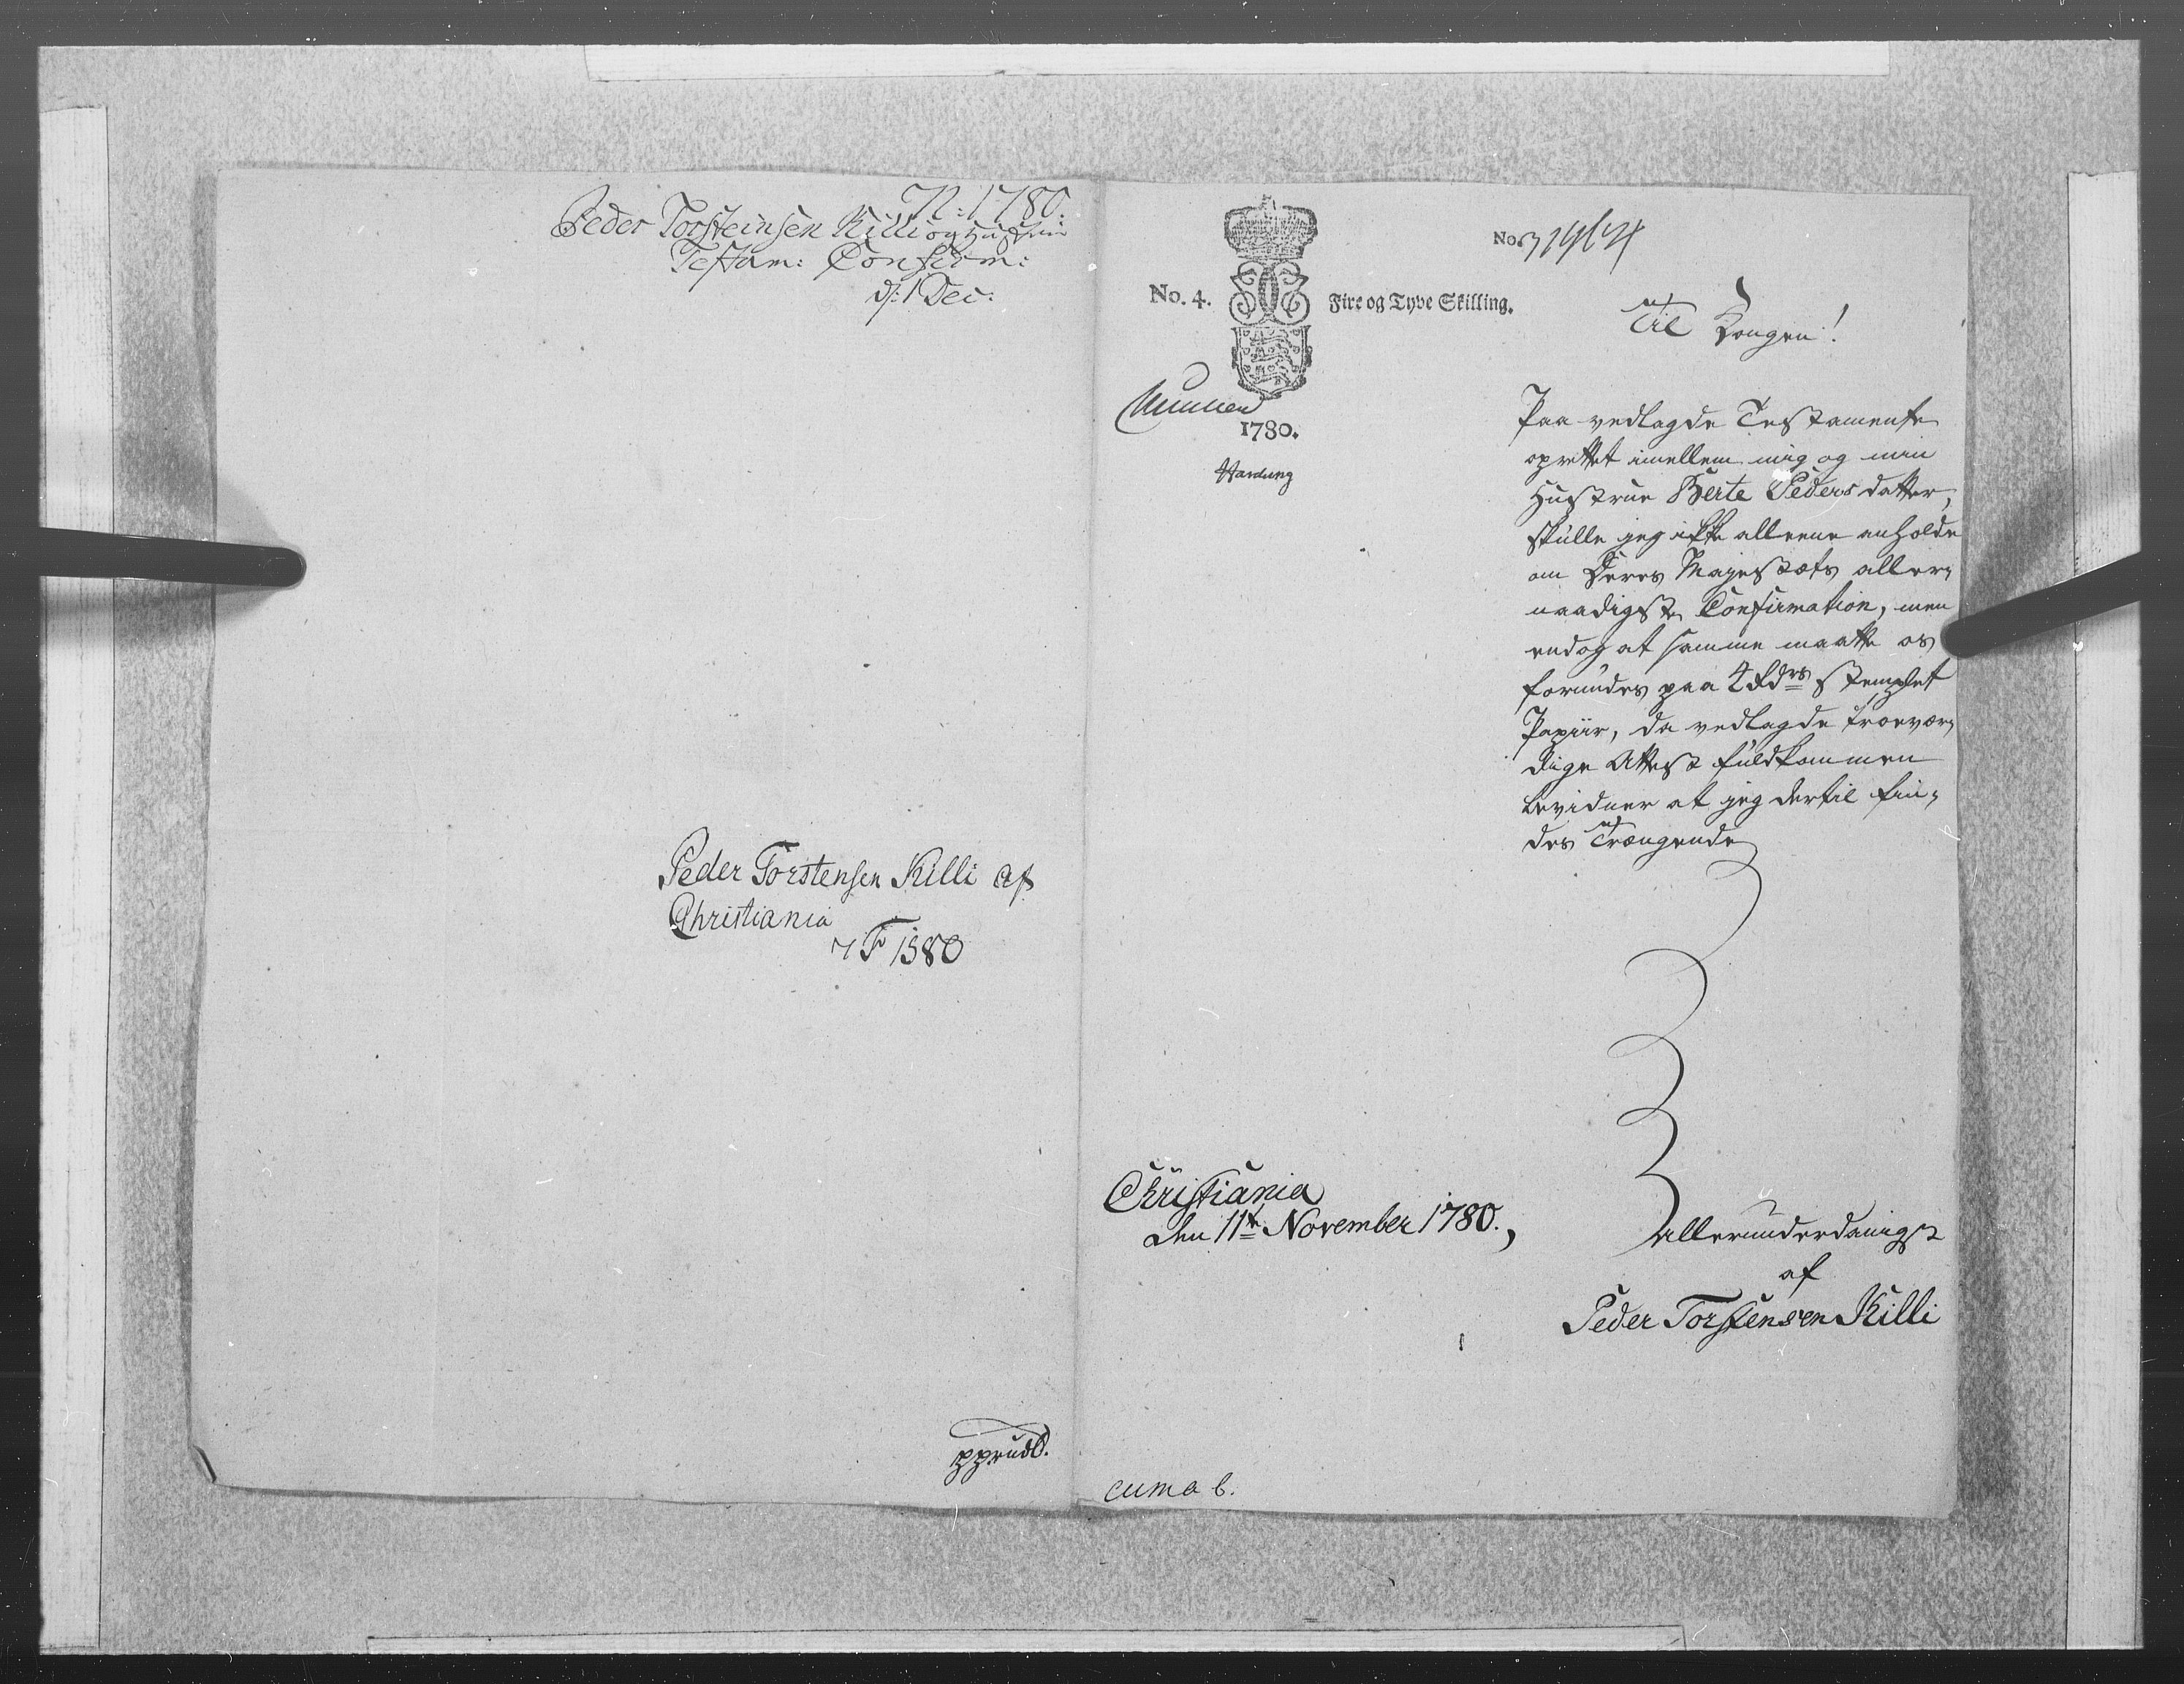 N: 1780.
Peder Torsteinsen Killi og Hustrue
Testam: Confirm:
d: 1 Dec:
Peder Torstensen Killi af
Christiania
7 F 1380
No. 4.
Fire og Tyve Skilling.
1780.
Hardung
No.
Til Kongen!
Paa vedlagde Testamente
oprettet imellem mig og min
Hustrue Berte Peders datter,
skulle jeg ikke alleene anholde
om Deres Majestæts aller-
naadigste Confirmation, men
endog at samme maatte os
forundes paa 4 Rdrs stemplet
Papiir, da vedlagde troevær-
dige Attest fuldkommen
bevidner at jeg dertil fin-
des Trængende
Christiania
den 11te November 1780.,
allerunderdanigst
af
Peder Torstensen Killi
cum a b.